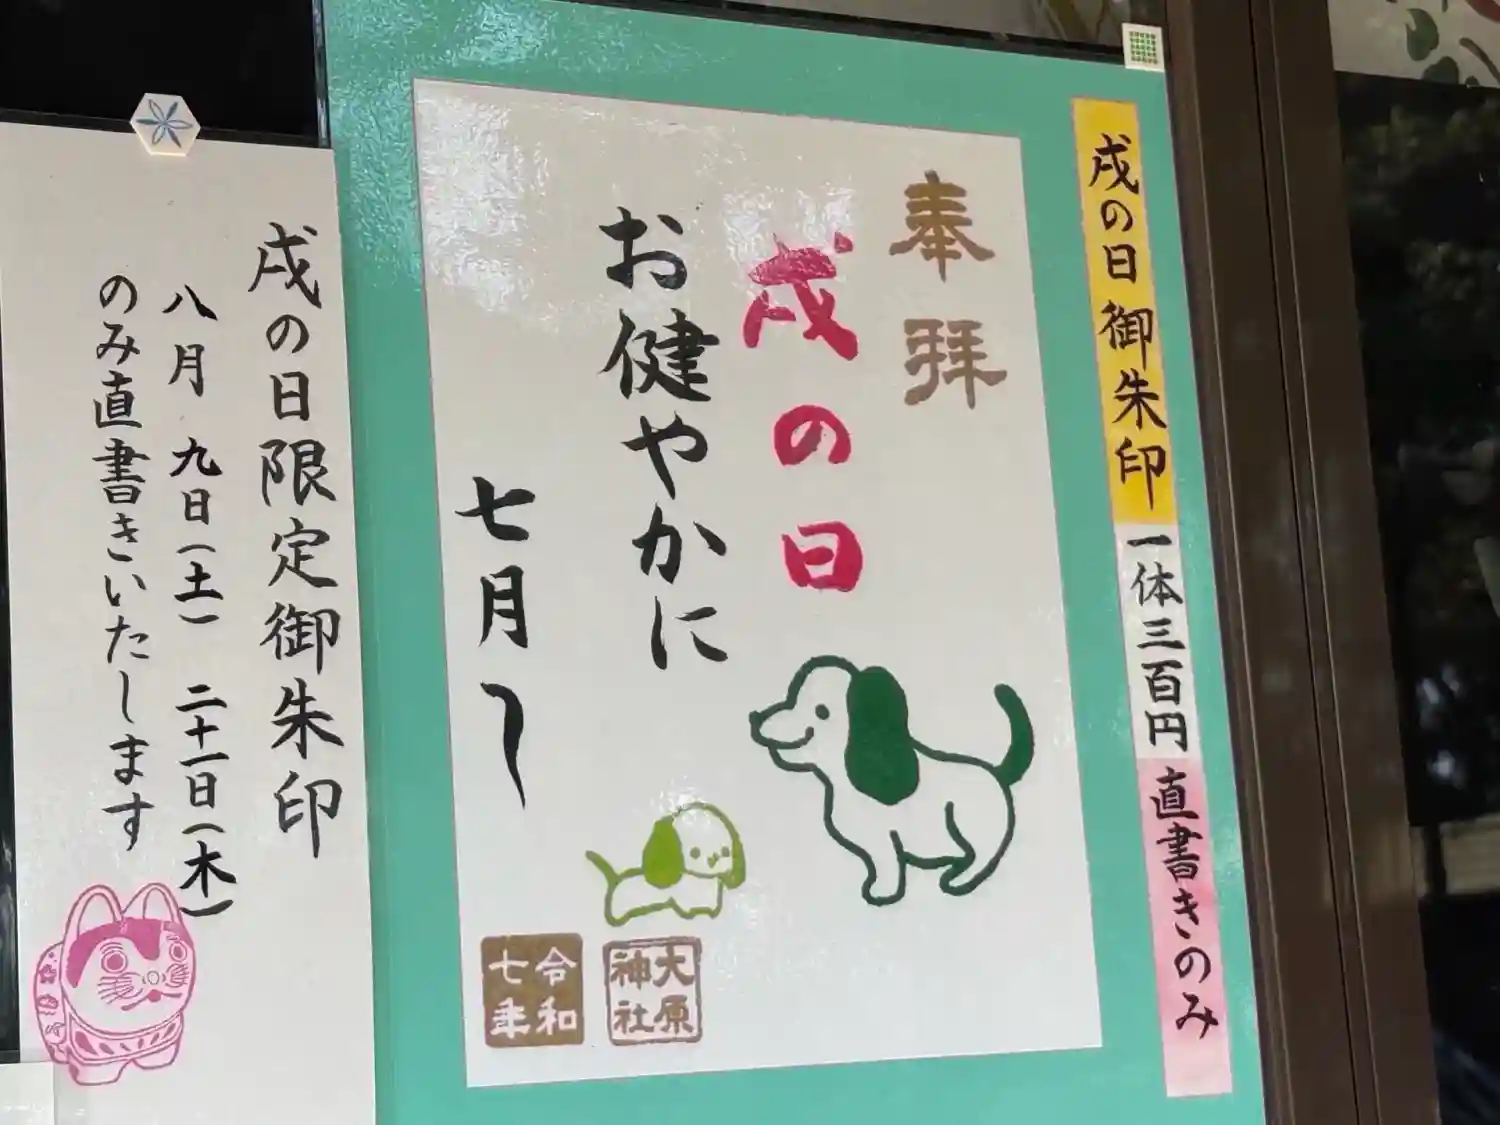 戌の日御朱印 一体三百円 直書きのみ
奉拝
戌の日
お健やかに
七月
大原神社
令和七年
戌の日限定御朱印
八月 九日(土) 二十一日(木)
のみ直書きいたします